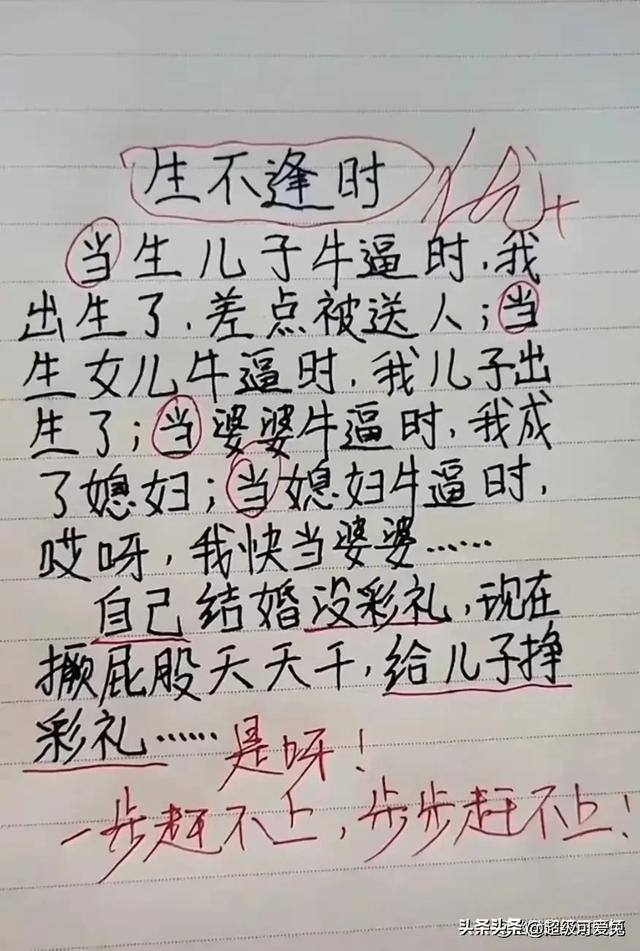 生不逢时 优+
当生儿子牛逼时,我
出生了,差点被送人;当
生女儿牛逼时,我儿子出
生了;当婆婆牛逼时,我成
了媳妇;当媳妇牛逼时,
哎呀,我快当婆婆……
自己结婚没彩礼,现在
撅屁股天天干,给儿子挣
彩礼……是呀!
一步赶不上,步步赶不上!
头条头条 @超级可爱兔